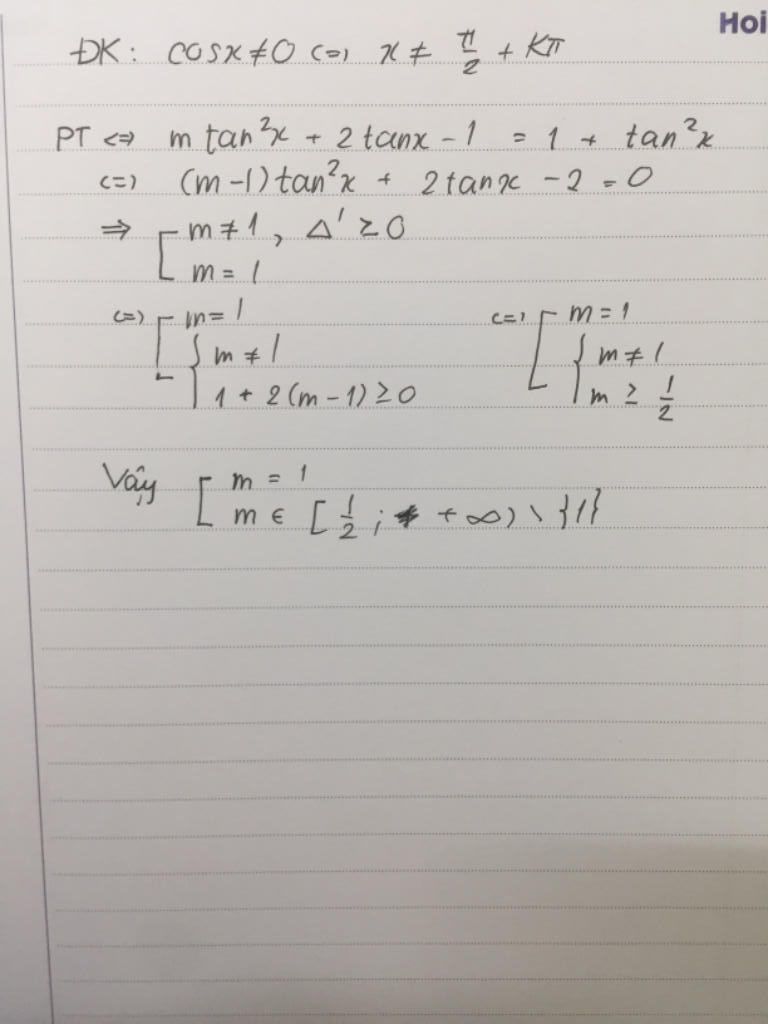 Hoi
ĐK: cosx ≠ 0 <=> x ≠ π/2 + Kπ
PT <=> m tan²x + 2 tanx - 1 = 1 + tan²x
<=> (m - 1) tan²x + 2 tanx - 2 = 0
=> [ m ≠ 1, Δ' ≥ 0
m = 1
<=> [ m = 1 <=> [ m = 1
{ m ≠ 1 { m ≠ 1
1 + 2(m - 1) ≥ 0 m ≥ 1/2
Vậy [ m = 1
m ∈ [1/2; +∞) \ {1}